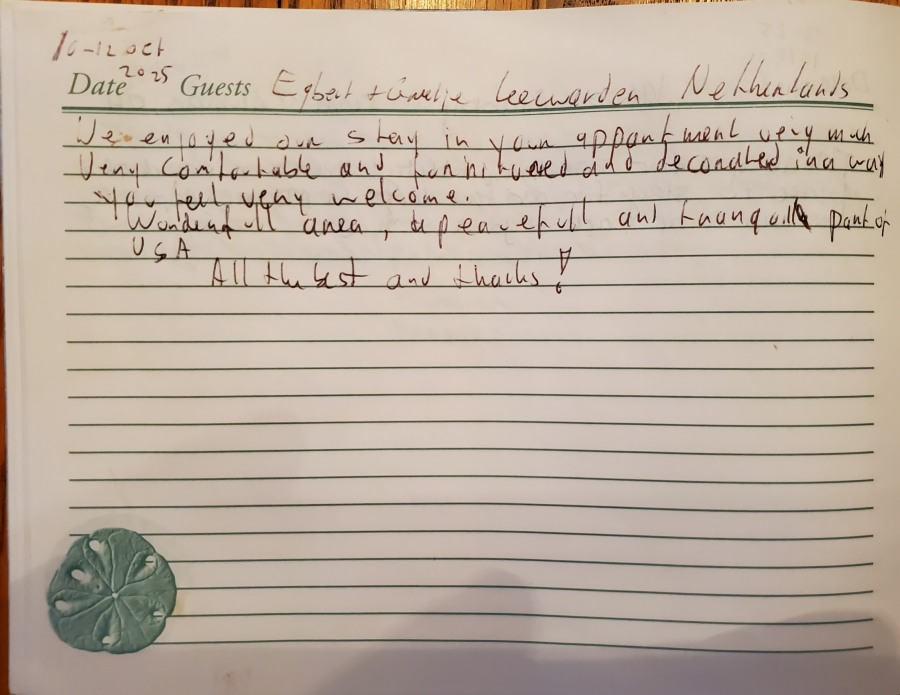 10-12 oct
Date 2025 Guests Egbert + Leeuwarden Netherlands
We enjoyed our stay in your appartment very much
Very Comfortable and furnitured and decorated in a way
you feel very welcome.
Wonderfull area, a peacefull and tranquill part of
USA
All the best and thanks!